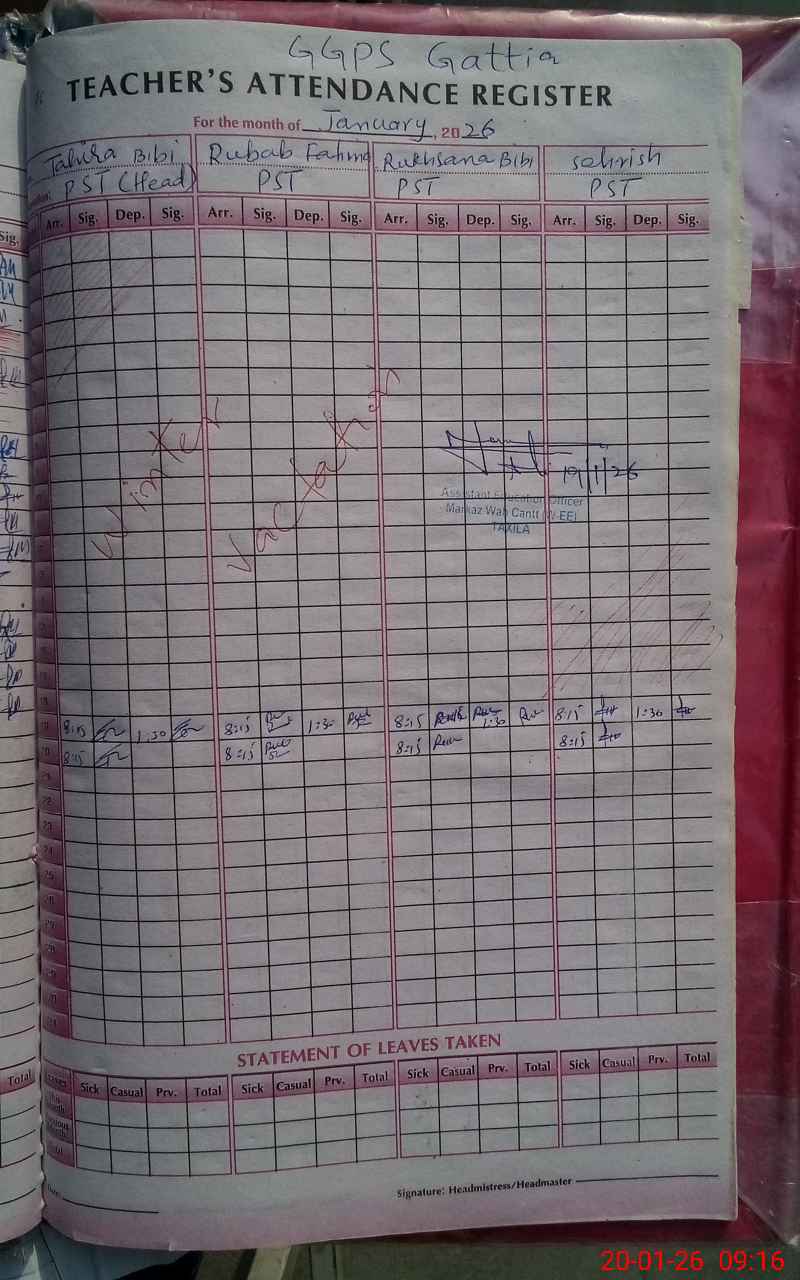 GGPS Gattia
TEACHER'S ATTENDANCE REGISTER
For the month of January, 2026
Tahira Bibi Rubab Fatima Rukhsana Bibi Sehrish
PST (Head) PST PST PST
Arr. Sig. Dep. Sig. Arr. Sig. Dep. Sig. Arr. Sig. Dep. Sig. Arr. Sig. Dep. Sig.
Sig.
Winter Vacation
19/1/26
Assistant Education Officer
Markaz Wah Cantt (W-EE)
TAXILA
19 8:15 1:30 8:15 1:30 8:15 1:30 8:15 1:30
20 8:15 8:15 8:15 8:15
21
22
23
24
25
26
27
28
29
30
31
STATEMENT OF LEAVES TAKEN
Total Sick Casual Prv. Total Sick Casual Prv. Total Sick Casual Prv. Total Sick Casual Prv. Total
Signature: Headmistress/Headmaster
20-01-26 09:16